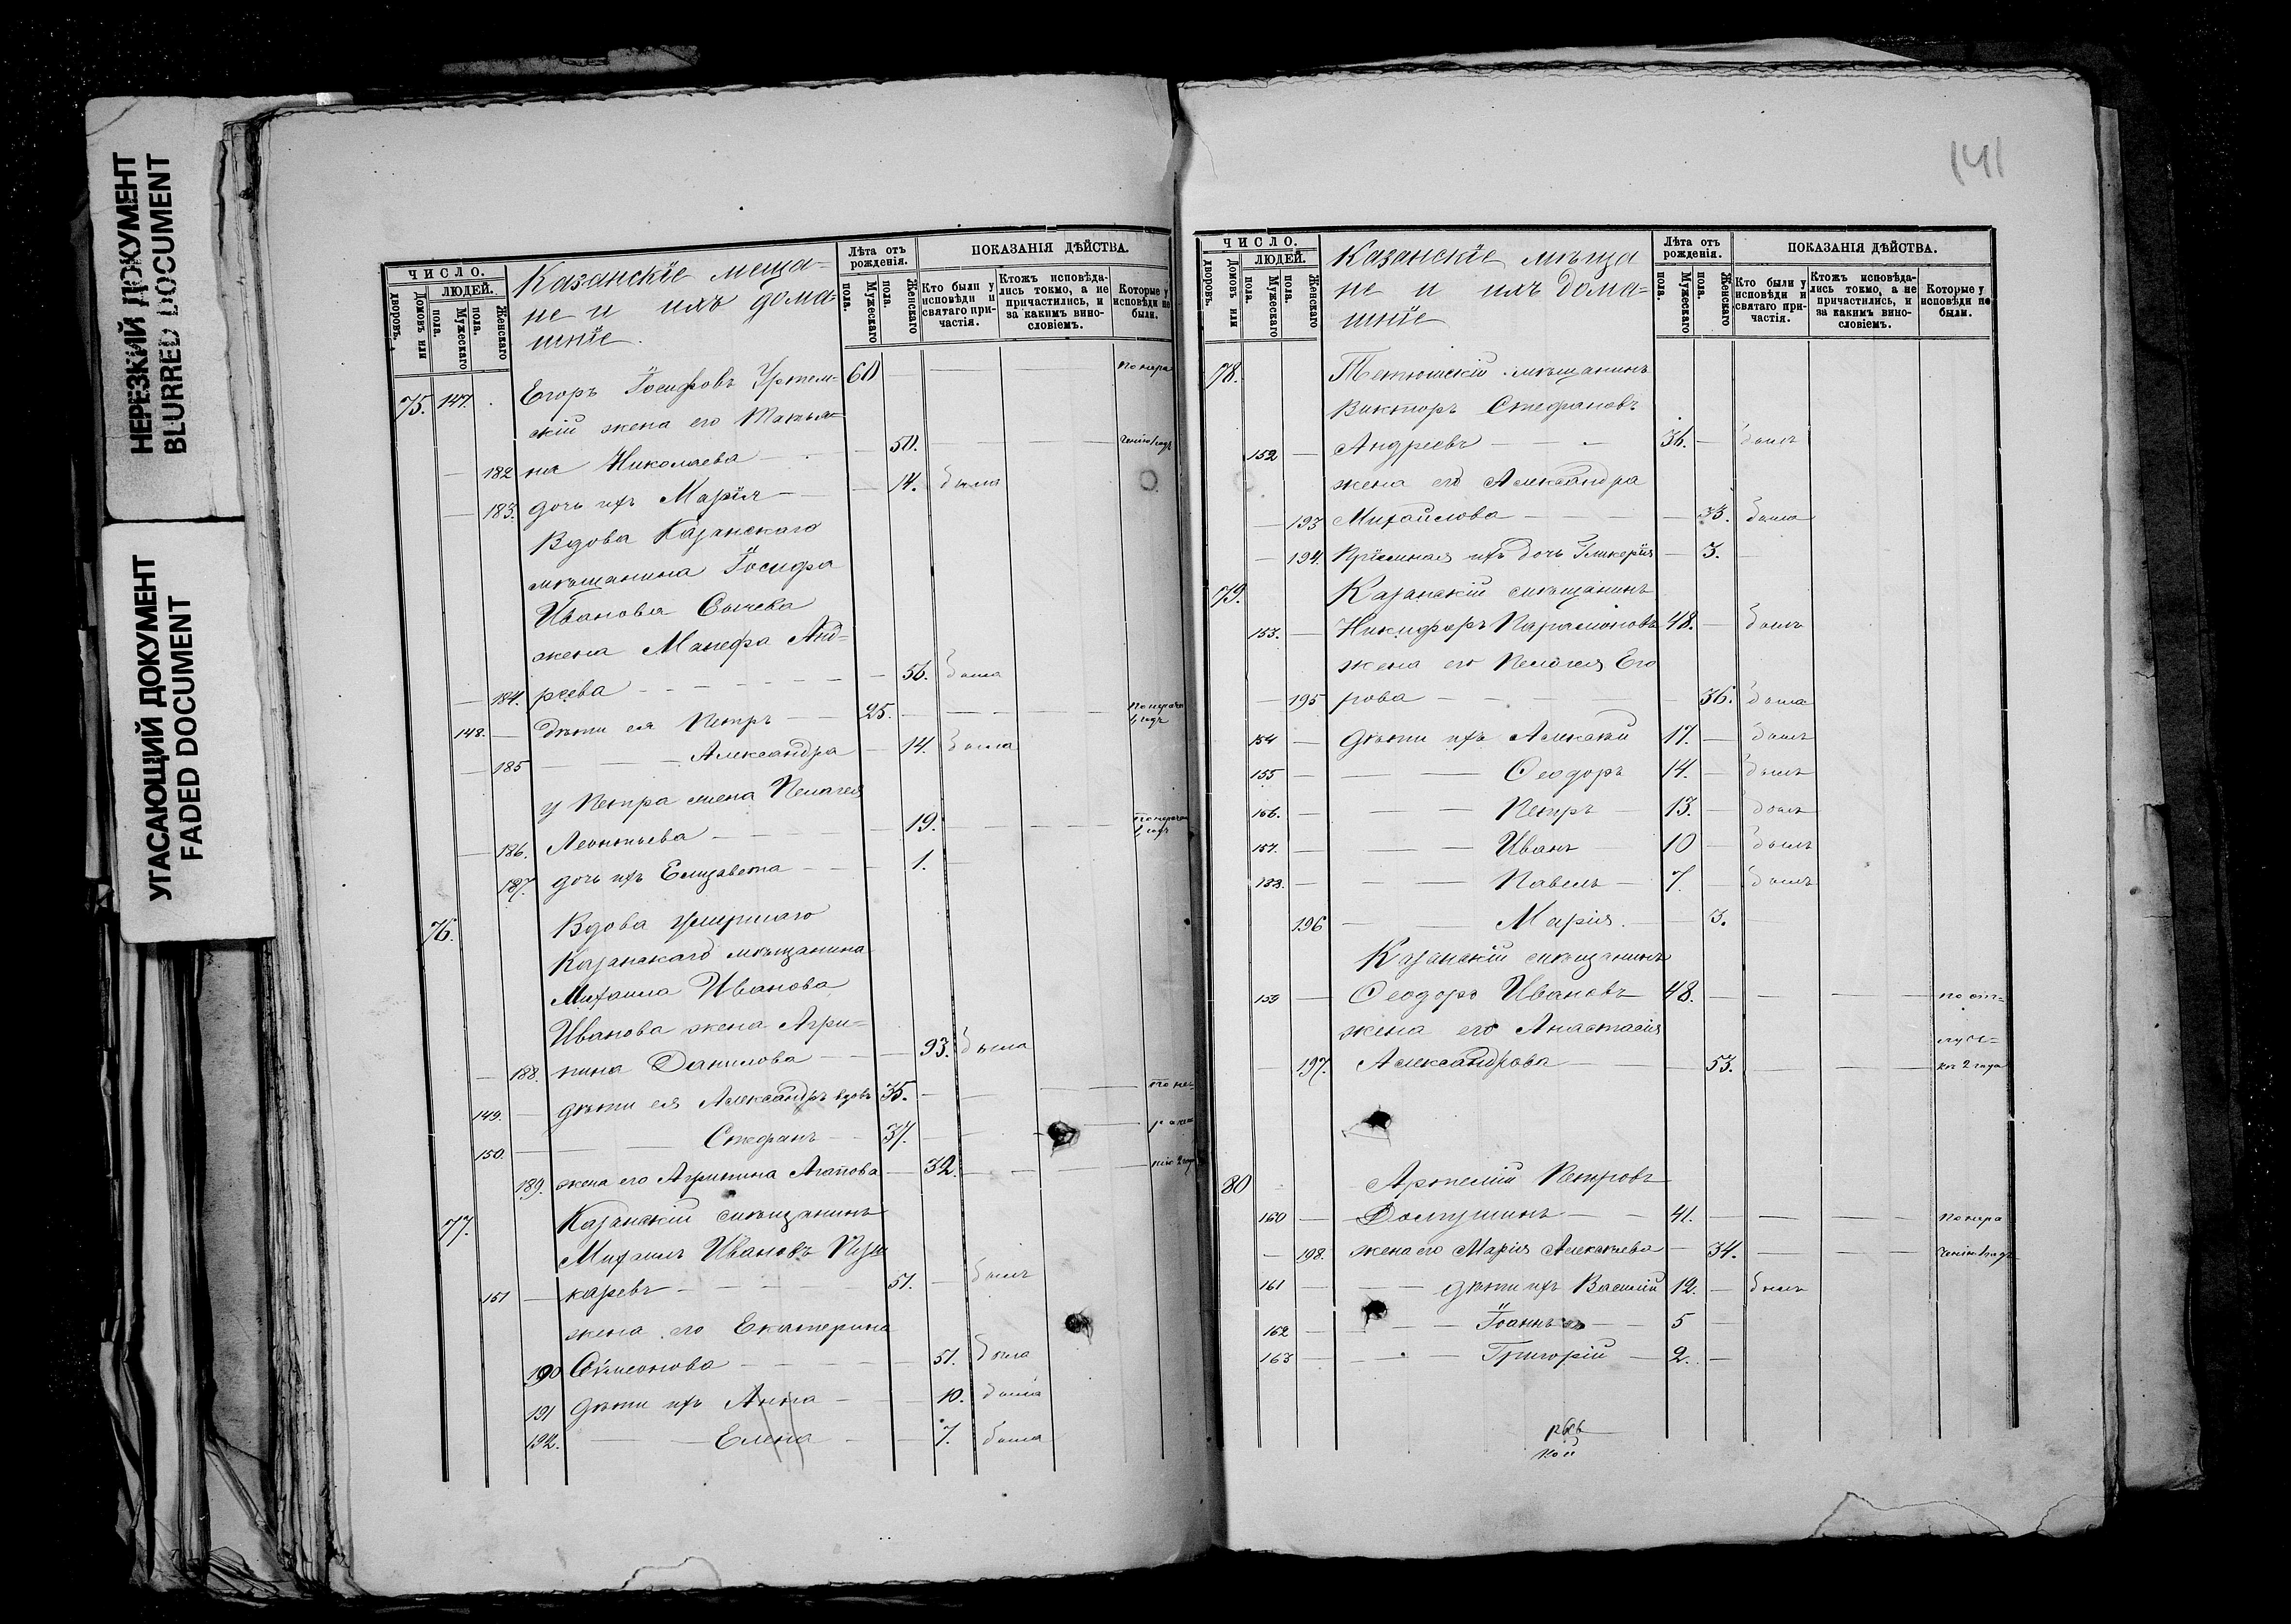 НЕРЕЗКИЙ ДОКУМЕНТ
BLURRED DOCUMENT
УГАСАЮЩИЙ ДОКУМЕНТ
FADED DOCUMENT
ЧИСЛО.
ЛЮДЕЙ.
Домовъ или дворовъ.
Мужескаго пола.
Женскаго пола.
Казанскіе меща-
не и ихъ дома-
шніе.
Лѣта отъ рожденія.
Мужескаго пола.
Женскаго пола.
ПОКАЗАНІЯ ДѢЙСТВА.
Кто были у исповѣди и святаго причастія.
Ктожъ исповѣдались токмо, а не причастились, и за какимъ винословіемъ.
Которые у исповѣди не были.
75. 147. Егоръ Іосифовъ 60 по нера
скій жена его Татья-
182 на Николаева 50. ченію 1 годъ
183. дочь ихъ Марія 14. была
Вдова Казанскаго
мѣщанина Іосифа
Иванова Сычева
жена Манефа Анд-
184. реева 56. была
148. дѣти ея Петръ 25. по нерач 1 годъ
185 Александра 14. была
у Петра жена Пелагея
186. Леонтьева 19. по нерач 1 годъ
187. дочь ихъ Елизавета 1.
76. Вдова умершаго
Казанскаго мѣщанина
Михаила Иванова
Иванова жена Агри-
188. пина Данилова 93. была
149. дѣти ея Александръ вдовъ 35. по не-
150. Стефанъ 37. раче-
189. жена его Агрипина Агапова 32. нію 2 года
77. Казанскій мѣщанинъ
Михаилъ Ивановъ
151 каревъ 51. былъ
жена его Екатерина
190 Симеонова 51. была
191 дѣти ихъ Анна 10. была
192. Елена 7. была
141
ЧИСЛО.
ЛЮДЕЙ.
Домовъ или дворовъ.
Мужескаго пола.
Женскаго пола.
Казанскіе мѣща
не и ихъ дома-
шніе
Лѣта отъ рожденія.
Мужескаго пола.
Женскаго пола.
ПОКАЗАНІЯ ДѢЙСТВА.
Кто были у исповѣди и святаго причастія.
Ктожъ исповѣдались токмо, а не причастились, и за какимъ винословіемъ.
Которые у исповѣди не были.
78. Тетюшскій мѣщанинъ
Викторъ Стефановъ
152 Андреевъ 36. былъ
жена его Александра
193 Михайлова 33. была
194. Пріемная ихъ дочь Гликерія 3.
79. Казанскій мѣщанинъ
153. Никифоръ Парамоновъ 48. былъ
жена его Пелагея Его
195 рова 36. была
154 дѣти ихъ Алексѣй 17. былъ
155 Ѳеодоръ 14. былъ
156. Петръ 13. былъ
157. Иванъ 10 былъ
158. Павелъ 7. былъ
196 Марія. 3.
Казанскій мѣщанинъ
159 Ѳеодоръ Ивановъ 48. по от-
жена его Анастасія луч-
197. Александрова 53. кѣ 2 года
80 Артемій Петровъ
160 Долгушинъ 41. по нера
198. жена его Марія Алексѣева 34. ченію 1 годъ
161 дѣти ихъ Василій 12. былъ
162 Іоаннъ 5
163 Григорій 2.